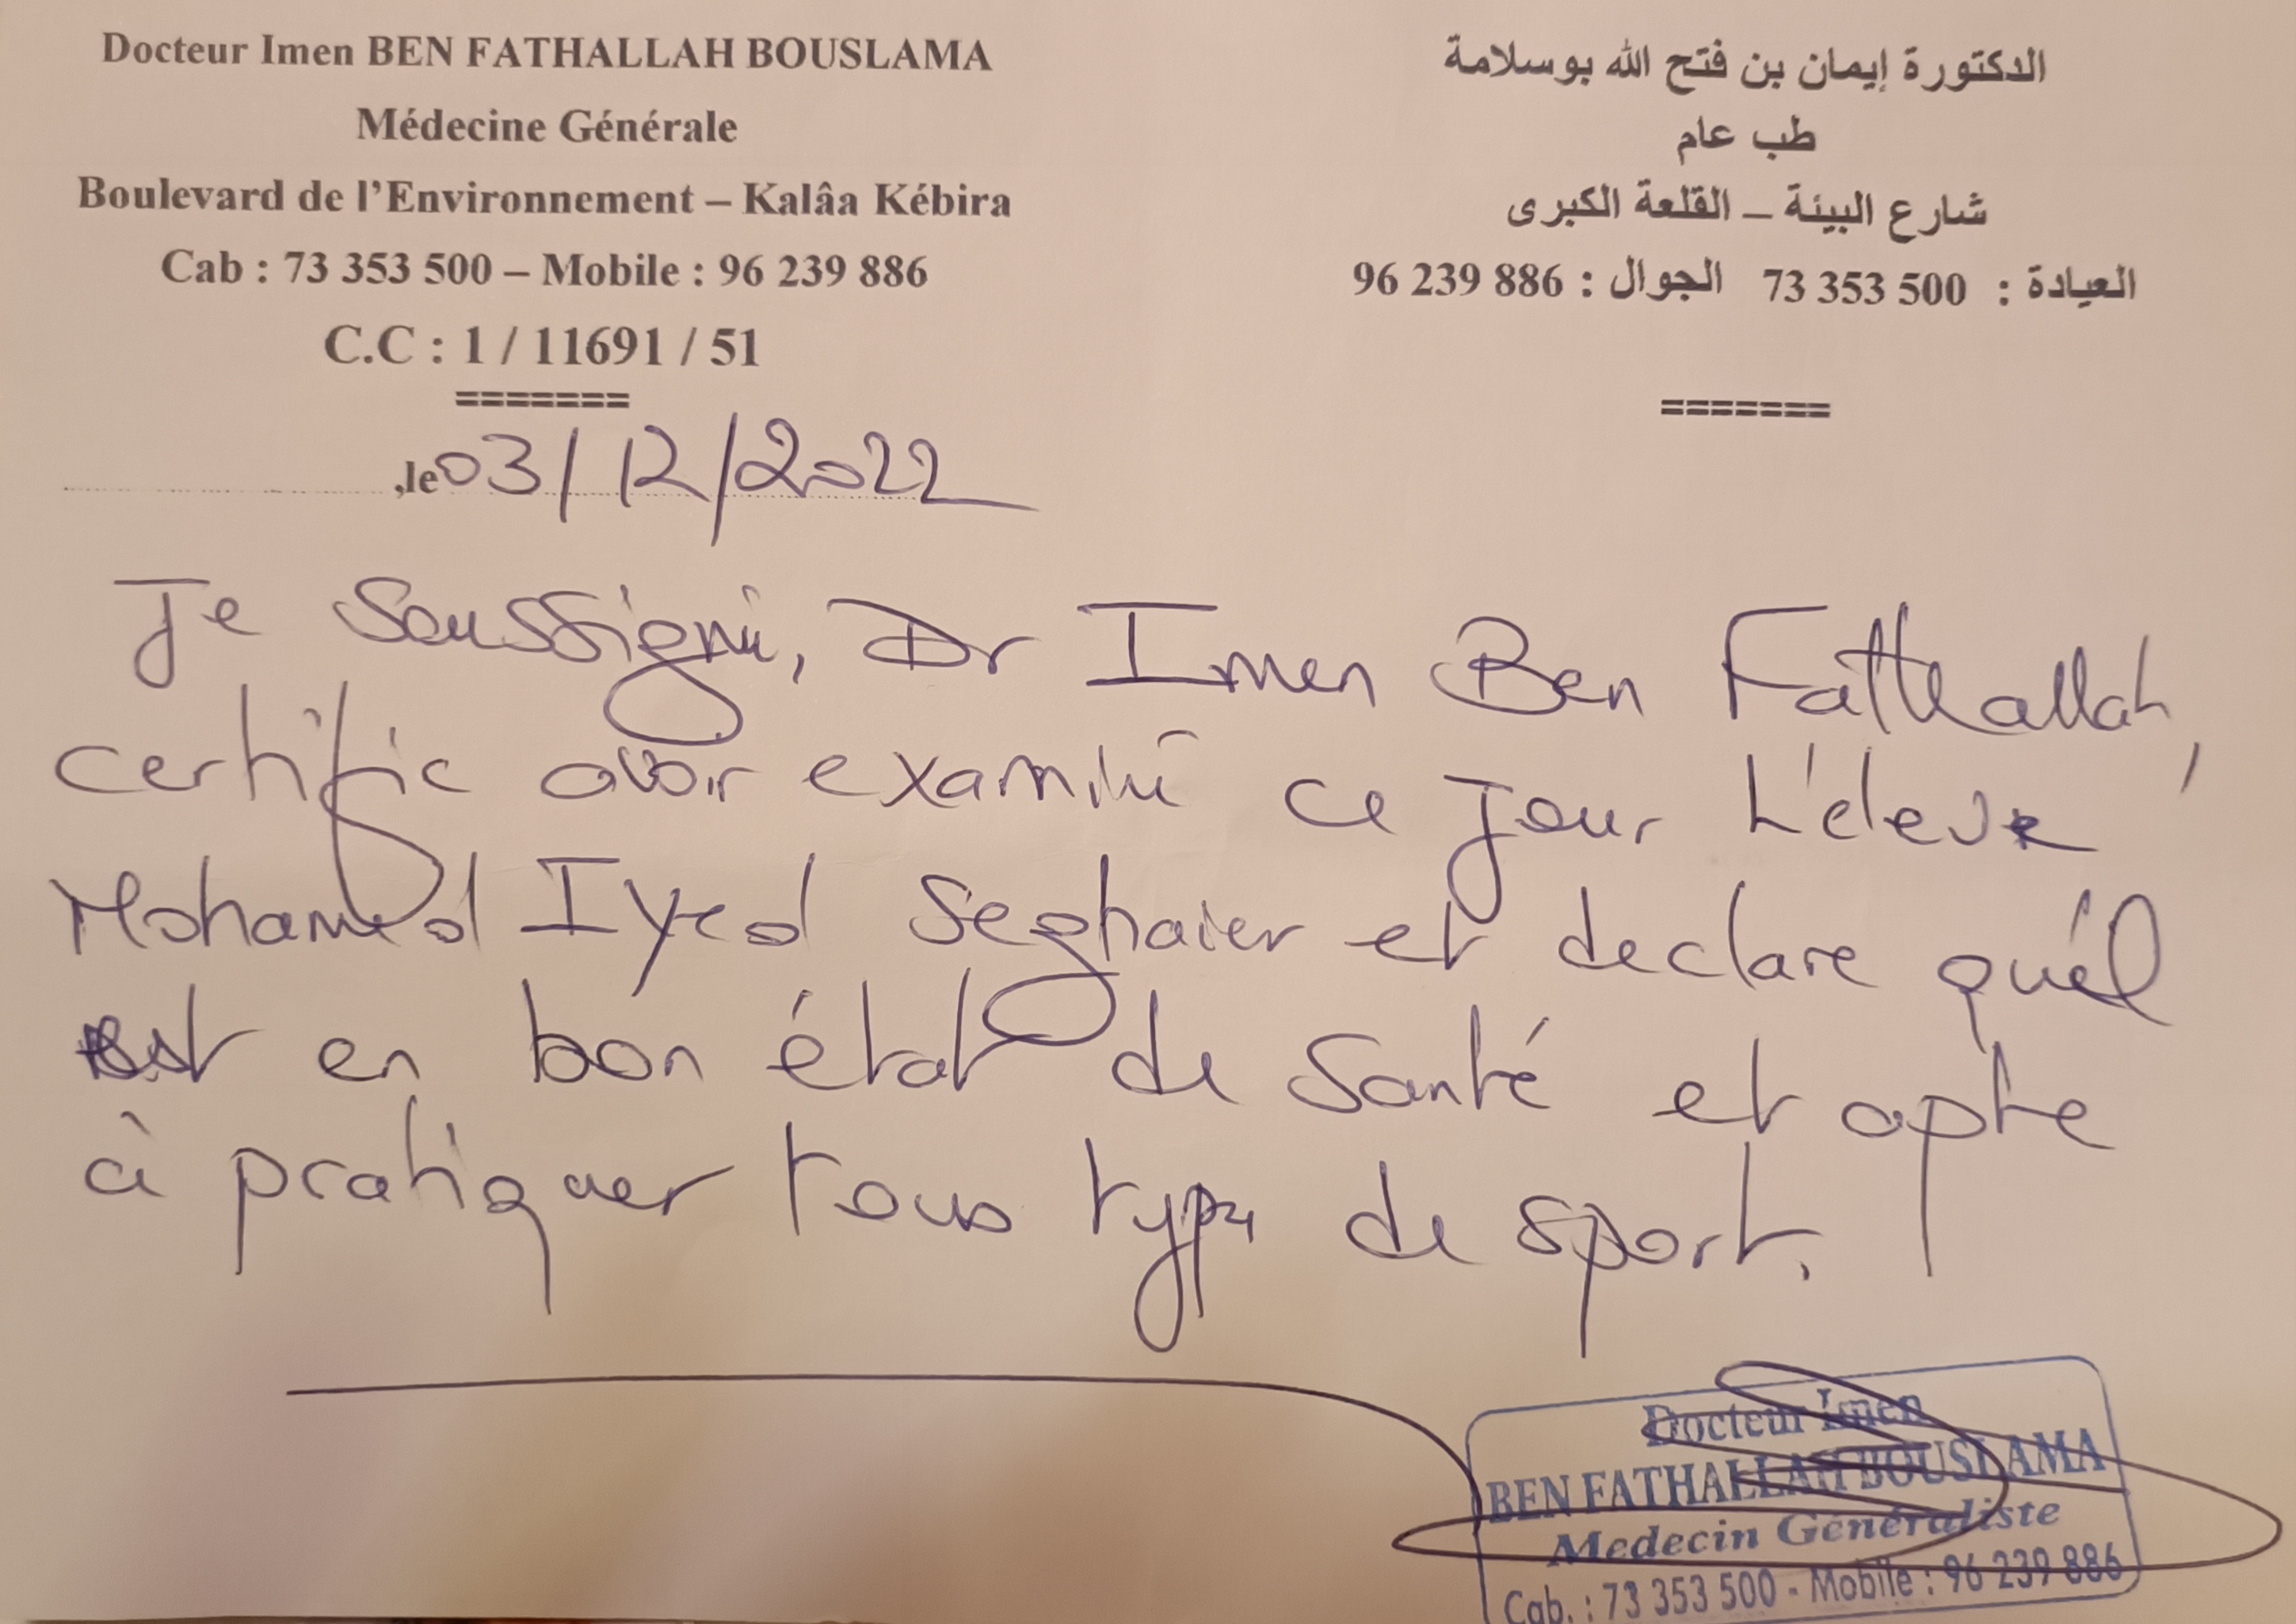 Docteur Imen BEN FATHALLAH BOUSLAMA
Médecine Générale
Boulevard de l'Environnement – Kalâa Kébira
Cab : 73 353 500 – Mobile : 96 239 886
C.C : 1 / 11691 / 51
=======
الدكتورة إيمان بن فتح الله بوسلامة
طب عام
شارع البيئة – القلعة الكبرى
العيادة : 73 353 500 الجوال : 96 239 886
=======
,le 03/12/2022
Je Soussigné, Dr Imen Ben Fathallah,
certifie avoir examiné ce Jour L'éleve
Mohamed Iyed Seghaier et declare qu'il
est en bon état de Santé et apte
à pratiquer tous type de sport.
Docteur Imen
BEN FATHALLAH BOUSLAMA
Medecin Généraliste
Cab. : 73 353 500 - Mobile : 96 239 886